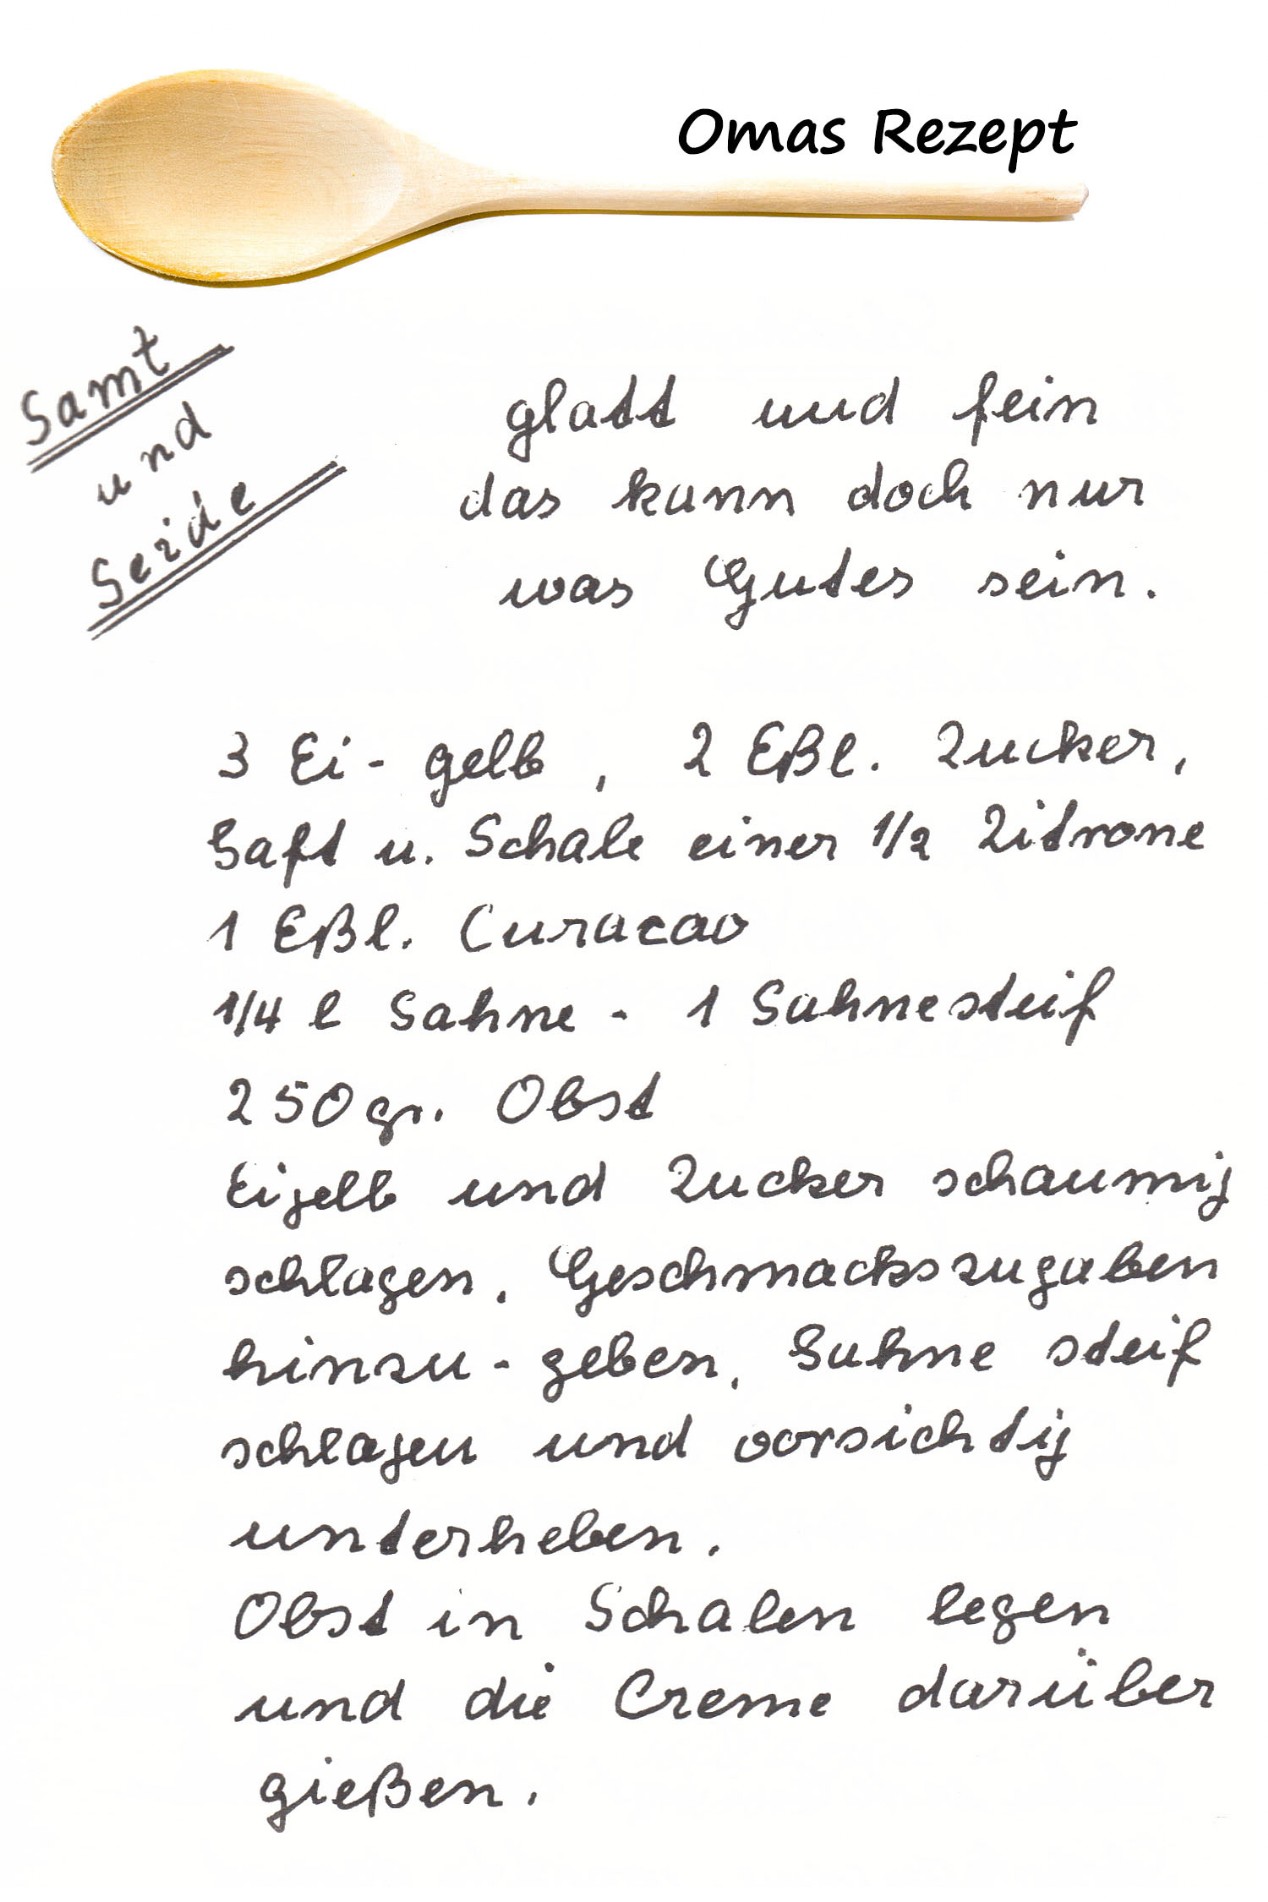 Omas Rezept
Samt
und
Seide
glatt und fein
das kann doch nur
was Gutes sein.
3 Ei - gelb, 2 Eßl. Zucker,
Saft u. Schale einer 1/2 Zitrone
1 Eßl. Curacao
1/4 l Sahne - 1 Sahnesteif
250 gr. Obst
Eigelb und Zucker schaumig
schlagen, Geschmackszugaben
hinzu - geben, Sahne steif
schlagen und vorsichtig
unterheben.
Obst in Schalen legen
und die Creme darüber
gießen.